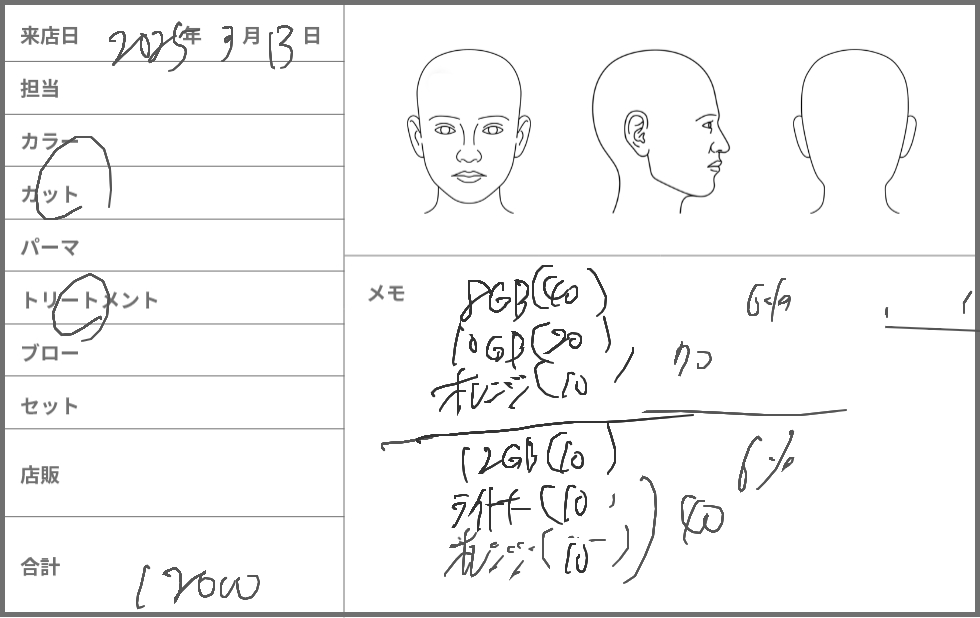 来店日 2025年 3月13日
担当
カラー
カット
パーマ
トリートメント
ブロー
セット
店販
合計 12000
メモ
8GB(40) 6%
10GB(20)
オレンジ(10
12GB(10) 6%
ライナー(10
オレンジ(10) 40